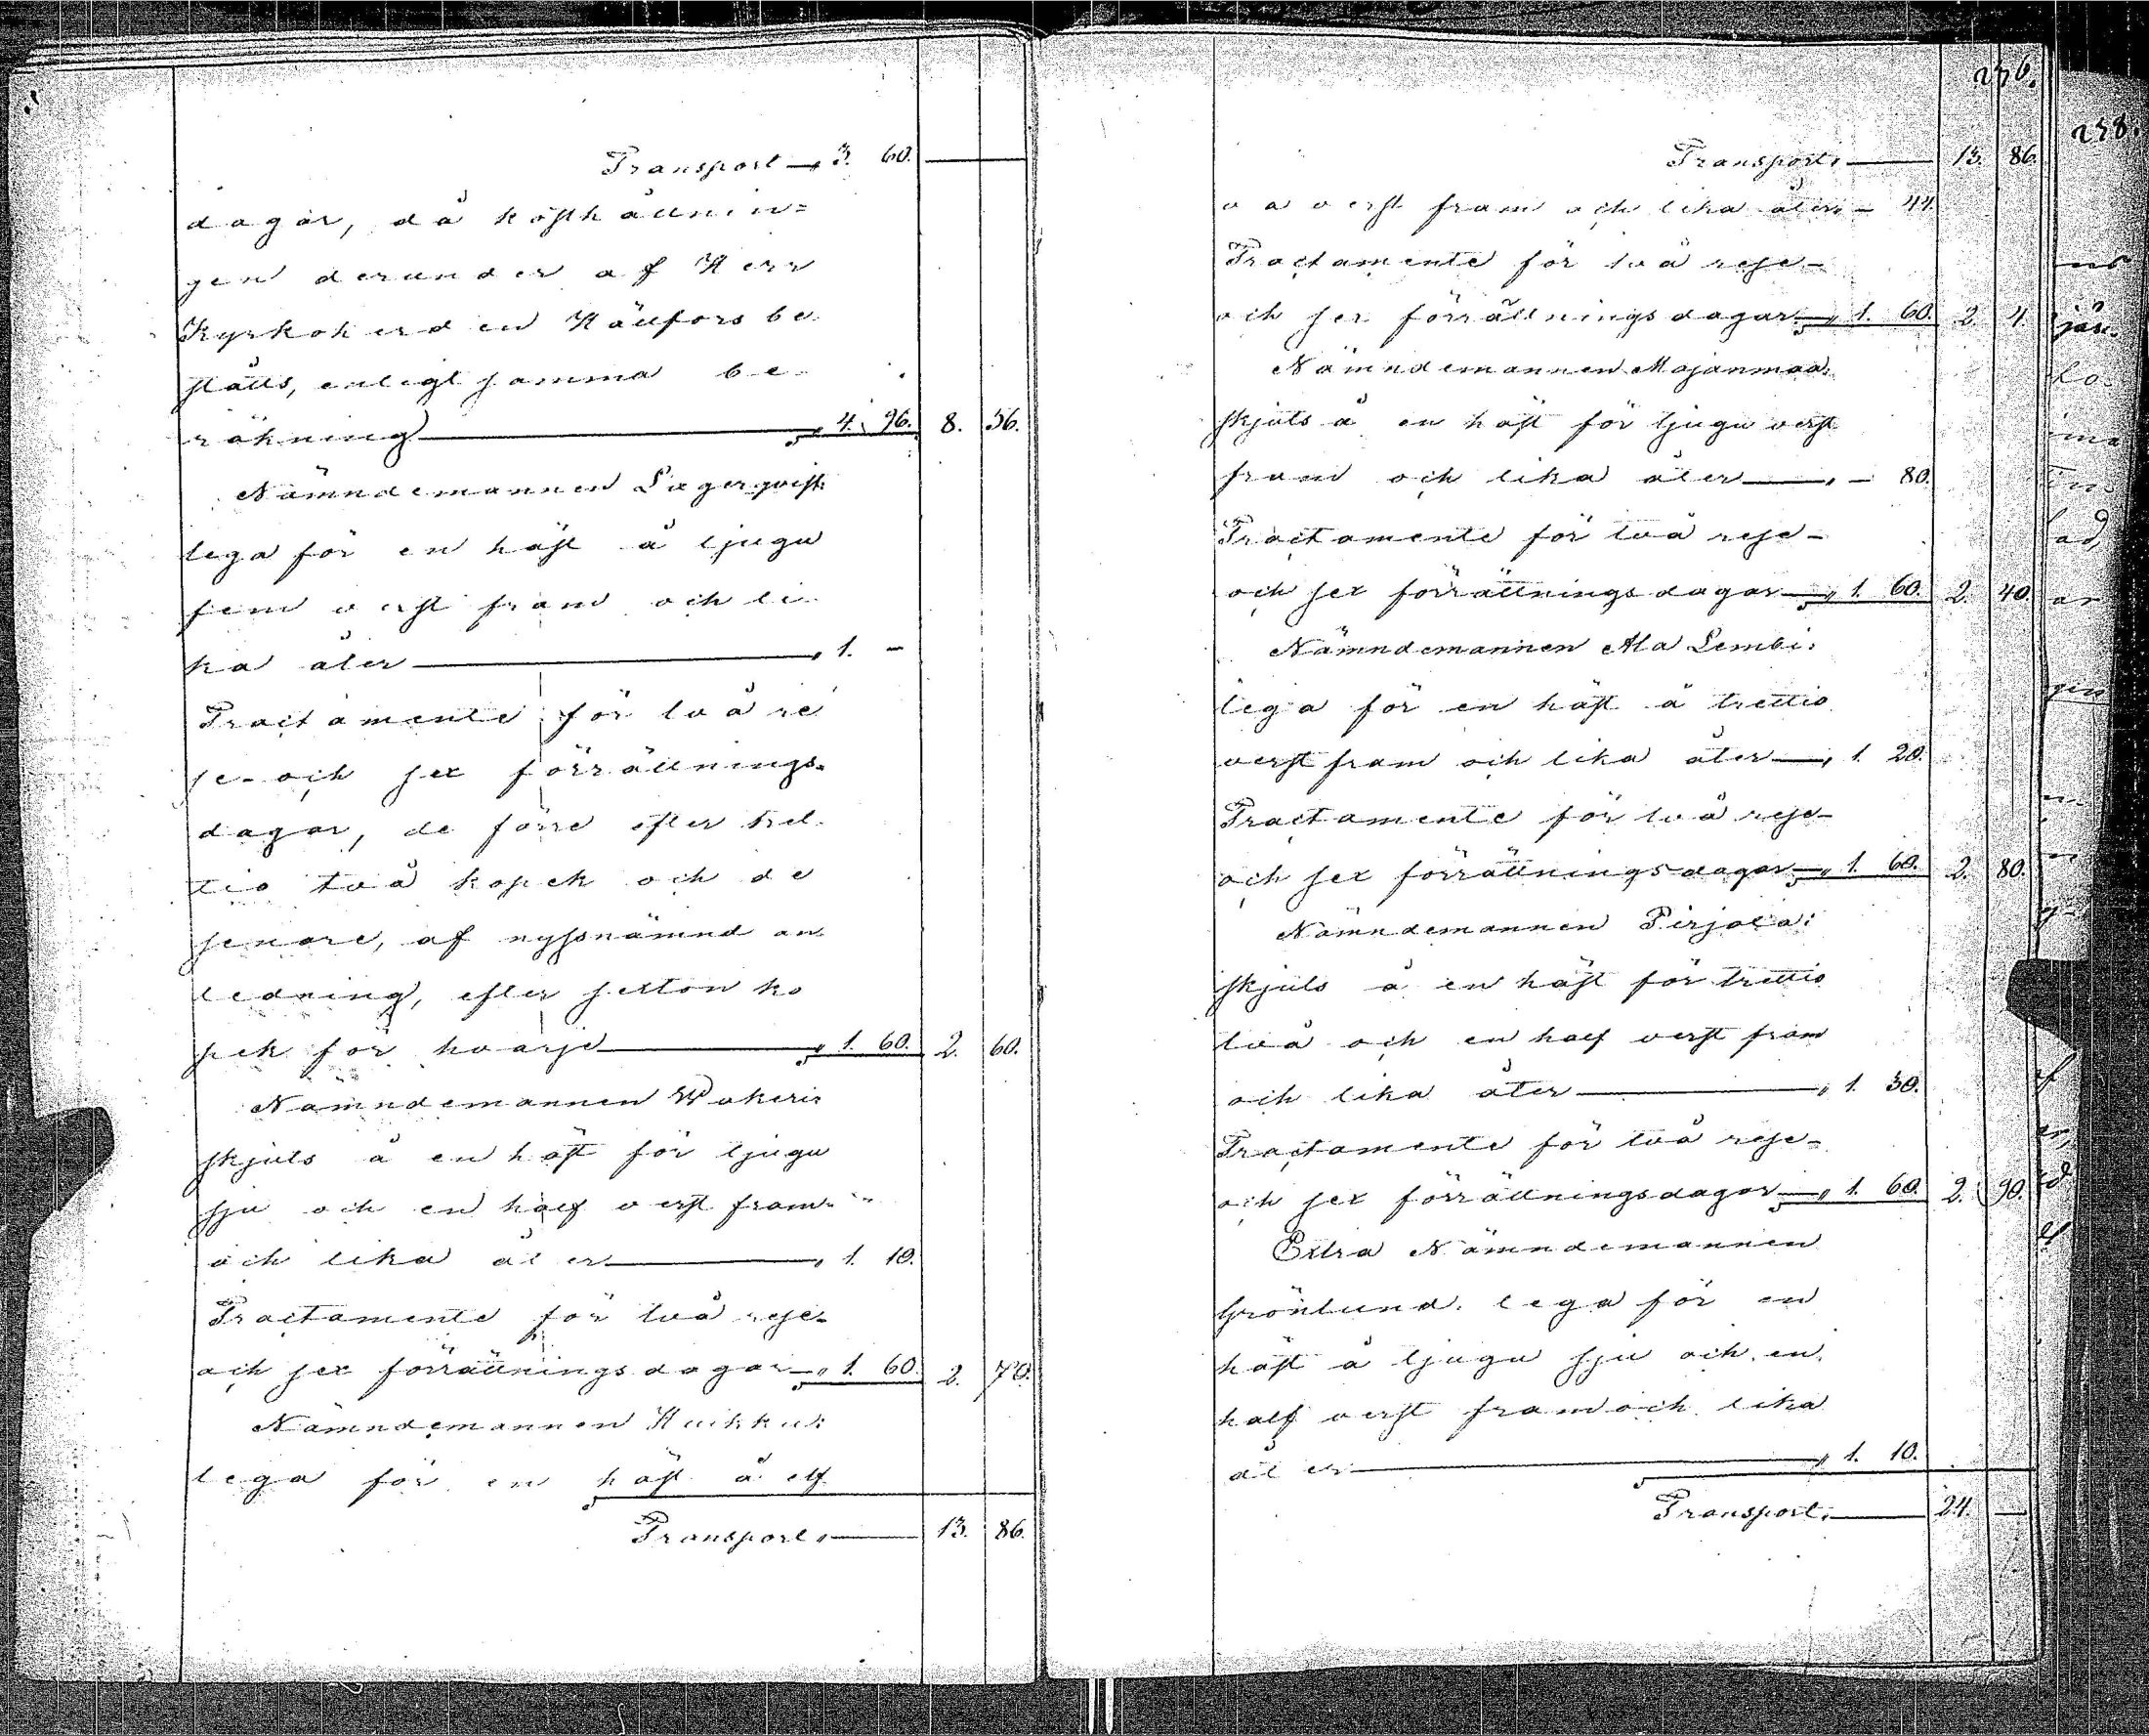 Transport „ 3. 60. —
dagar, då kosthållnin=
gen derunder af Herr
Kyrkoherden Hällfors be
stålts, enligt samma be-
räkning — „ 4. 96. 8. 56.
Nämndemannen Lagerqvist:
lega för en häst å tjugu
fem verst fram och li-
ka åter — „ 1. –
Tractamente för två re
se- och sex förrättnings-
dagar, de förre efter tret-
tio två kopek och de
senare, af nyssnämnd an
ledning, efter sexton ko
pek för hvarje — „ 1. 60. 2. 60.
Nämndemannen Wakeri:
skjuts å en häst för tjugu
sju och en half verst fram
och lika åter — „ 1. 10.
Tractamente för två rese-
och sex förrättningsdagar — „ 1. 60. 2. 70.
Nämndemannen Huikku:
lega för en häst å elf
Transport „ — 13. 86.
276.
Transport „ — 13. 86.
va verst fram och lika åter „ – 44.
Tractamente för två rese-
och sex förrättningsdagar — „ 1. 60. 2. 4.
Nämndemannen Majanmaa:
skjuts å en häst för tjugu verst
fram och lika åter — „ – 80.
Tractamente för två rese-
och sex förrättningsdagar — „ 1. 60. 2. 40.
Nämndemannen Ala Lembi:
lega för en häst å trettio
verst fram och lika åter — „ 1. 20.
Tractamente för två rese-
och sex förrättningsdagar — „ 1. 60. 2. 80.
Nämndemannen Pirjola:
skjuts å en häst för trettio
två och en half verst fram
och lika åter — „ 1. 30.
Tractamente för två rese-
och sex förrättningsdagar — „ 1. 60. 2. 90.
Extra Nämndemannen
Grönlund: lega för en
häst å tjugu sju och en
half verst fram och lika
åter — „ 1. 10.
Transport „ — 24. —
278.